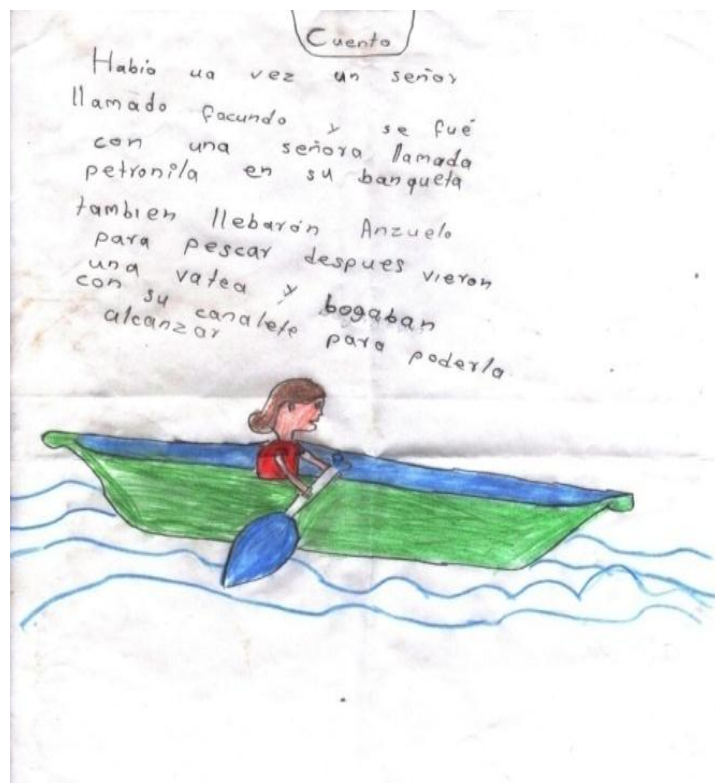 Cuento
Habio ua vez un señor
llamado facundo y se fué
con una señora llamada
petronila en su banqueta
tambien llebarón Anzuelo
para pescar despues vieron
una vatea y bogaban
con su canalete para poderla
alcanzar